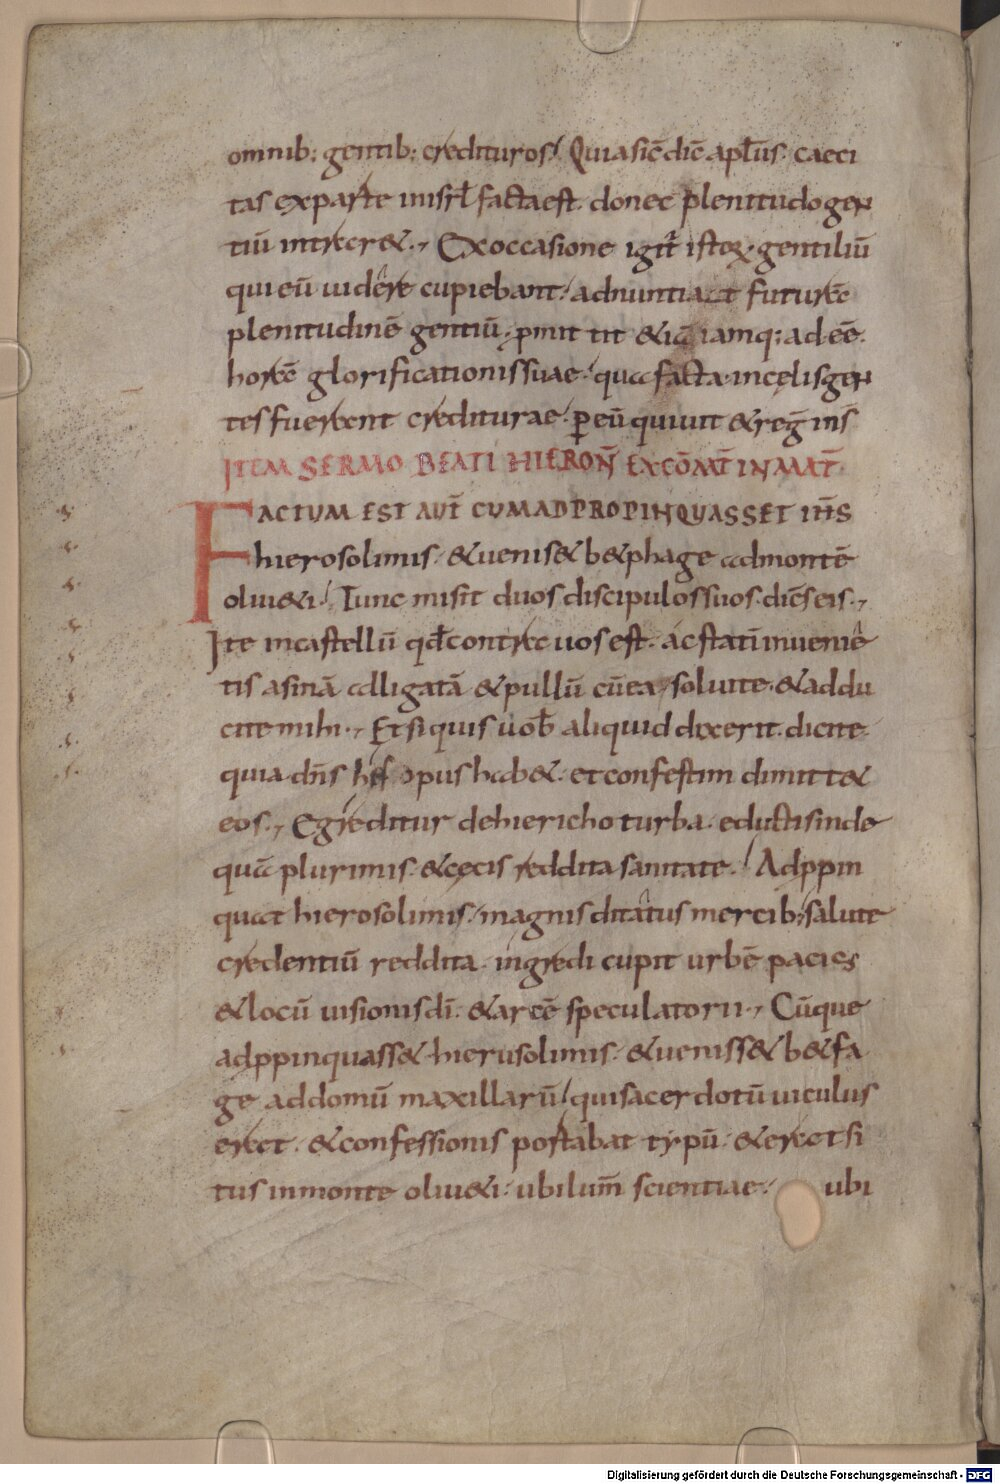 omnib; gentib; credituros. Quia sic̄ dic̄ apl̄us. caeci
tas ex parte in isrl̄ facta est. donec plenitudo gen
tiū intraret. Ex occasione igit̄ istoꝝ. gentiliū
qui eū uidere cupiebant. adnuntiat futurā
plenitudinē gentiū. 
horā glorificationis suae. quia facta in cęlis gen
tes fuerant crediturae. ꝑ eū qui uiuit & reḡ in s̄
ITEM SERMO BEATI HIERON̄ EX COM̄T IN MAT̄
FACTUM EST AUT̄ CUM ADPROPINQUASSET IH̄S
hierosolimis. & uenis& b&phage ad montē
oliu&i. Tunc misit duos discipulos suos. dicēs eis.
Ite in castellū qd̄ contra uos est. ac statī inuenie
tis asinā alligatā & pullū cū ea. soluite. & addu
cite mihi. Et si quis uob̄ aliquid dixerit. dicite.
quia dn̄s his opus hab&. et confestim dimitt&
eos. Egreditur de hiericho turba. eductis inde
quā plurimis. & cęcis reddita sanitate. Adppin
quat hierosolimis. magnis ditatus mercib; salute
credentiū reddita. ingredi cupit urbē pacis
& locū uisionis dī. & arcē speculatorii. Cūque
adppinquass& hierusolimis. & ueniss& b&fa
ge ad domū maxillarū. qui sacerdotū uiculus
erat. & confessionis portabat typū. & erat si
tus in monte oliu&i. ubi lum̄ scientiae. ubi
Digitalisierung gefördert durch die Deutsche Forschungsgemeinschaft - DFG